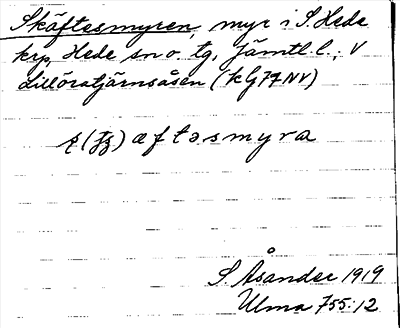 Skäftesmyren, myr i S. Hede
krp, Hede sn o. tg, Jämtl. l.; V
Lillöratjärnsåsen (kbg 77 NV)
æftəsmyra
S Åsander 1919
Ulma 755:12